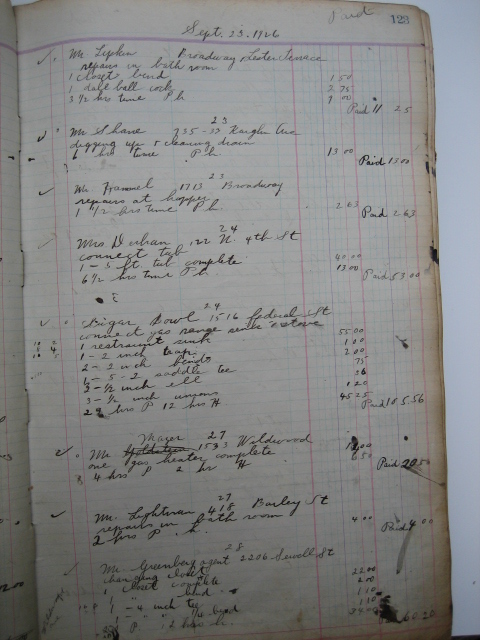 Paid 123
Sept. 23, 1926
Mr. Lipkin Broadway Lester Terrace
repairs in bath room
1 closet bend 1 50
1 dale ball cock 2 75
3 1/2 hrs time Ph 7 00
Paid 11 25
23
Mr Shane 735-33 Kaighn Ave
digging up + clearing drain
6 hrs time Ph 13 00
Paid 13 00
23
Mr. Hammel 1713 Broadway
repairs at hopper
1 1/2 hrs time Ph. 2 63
Paid 2 63
24
Mrs Durban 122 N. 4th St
connect tub
1-5 ft. tub complete 40.00
6 1/2 hrs time Ph 13.00
Paid 53.00
24
Bowl 1516 Federal St
connect gas range sink
1 restraunt sink 55 00
1-2 inch trap 1 00
2-2 inch bends 2 00
1-5-2 saddle tee 75
3-1/2 inch ell
3-1/2 inch unions 1 20
29 hrs P 12 hrs H 45 25
Paid 105.56
Mayer 27
Mr. 1533 Wildwood
one gas heater complete
4 hrs P 2 hr H 6 50
Paid 20 50
27
Mr. Lightman 418 Barley St
repairs in bath room
2 hrs P. h. 4 00
Paid 4 00
28
Mr. Greenberg agent 2206 Sewell St
changing closet
1 closet complete 22 00
1 " bend 2 00
1-4 inch tee 1 50
1 " 1/4 bend 1 10
P. 12 hrs h. 34 00
60.20